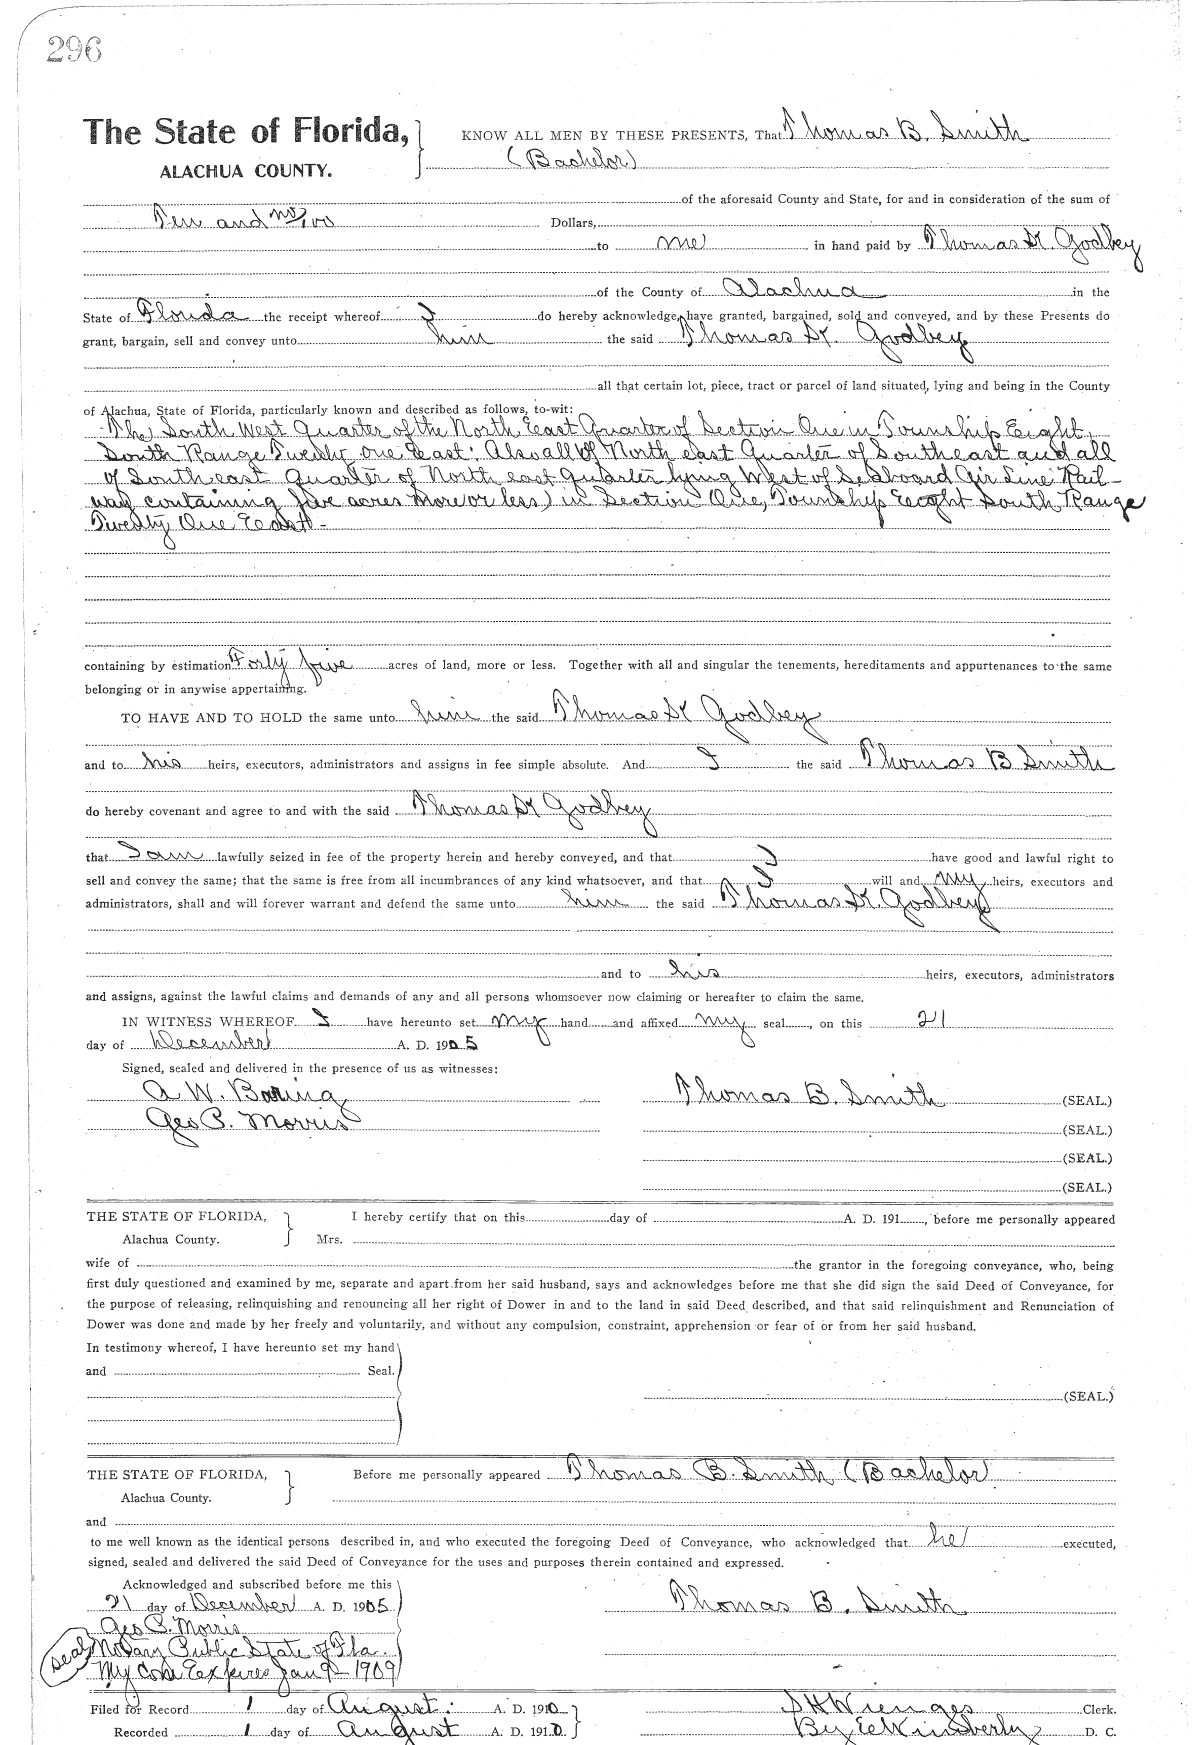 296
The State of Florida,
ALACHUA COUNTY.
KNOW ALL MEN BY THESE PRESENTS, That Thomas B. Smith
(Bachelor)
of the aforesaid County and State, for and in consideration of the sum of
Ten and no/100 Dollars,
to me in hand paid by Thomas H. Godbey
of the County of Alachua in the
State of Florida the receipt whereof I do hereby acknowledge, have granted, bargained, sold and conveyed, and by these Presents do
grant, bargain, sell and convey unto him the said Thomas H. Godbey
all that certain lot, piece, tract or parcel of land situated, lying and being in the County
of Alachua, State of Florida, particularly known and described as follows, to-wit:
The South West Quarter of the North East Quarter of Section One in Township Eight,
South Range Twenty one East: Also all of North east Quarter of Southeast and all
of Southeast Quarter of North east Quarter lying West of Seaboard Air Line Rail-
way containing five acres more or less) in Section One, Township Eeight South Range
Twenty One East -
containing by estimation Forty five acres of land, more or less. Together with all and singular the tenements, hereditaments and appurtenances to the same
belonging or in anywise appertaining.
TO HAVE AND TO HOLD the same unto him the said Thomas H Godbey
and to his heirs, executors, administrators and assigns in fee simple absolute. And I the said Thomas B Smith
do hereby covenant and agree to and with the said Thomas H Godbey
that I am lawfully seized in fee of the property herein and hereby conveyed, and that I have good and lawful right to
sell and convey the same; that the same is free from all incumbrances of any kind whatsoever, and that I will and my heirs, executors and
administrators, shall and will forever warrant and defend the same unto him the said Thomas H. Godbey
and to his heirs, executors, administrators
and assigns, against the lawful claims and demands of any and all persons whomsoever now claiming or hereafter to claim the same.
IN WITNESS WHEREOF I have hereunto set my hand and affixed my seal, on this 21
day of December A. D. 1905
Signed, sealed and delivered in the presence of us as witnesses:
A W. Baring Thomas B. Smith (SEAL.)
Geo P. Morris (SEAL.)
(SEAL.)
(SEAL.)
THE STATE OF FLORIDA, I hereby certify that on this day of A. D. 191 , before me personally appeared
Alachua County. Mrs.
wife of the grantor in the foregoing conveyance, who, being
first duly questioned and examined by me, separate and apart from her said husband, says and acknowledges before me that she did sign the said Deed of Conveyance, for
the purpose of releasing, relinquishing and renouncing all her right of Dower in and to the land in said Deed described, and that said relinquishment and Renunciation of
Dower was done and made by her freely and voluntarily, and without any compulsion, constraint, apprehension or fear of or from her said husband.
In testimony whereof, I have hereunto set my hand
and Seal.
(SEAL.)
THE STATE OF FLORIDA, Before me personally appeared Thomas B. Smith (Bachelor
Alachua County.
and
to me well known as the identical persons described in, and who executed the foregoing Deed of Conveyance, who acknowledged that he executed,
signed, sealed and delivered the said Deed of Conveyance for the uses and purposes therein contained and expressed.
Acknowledged and subscribed before me this
21 day of December A. D. 1905 Thomas B. Smith
Geo P. Morris
seal Notary Public State of Fla.
My Com Expires Jan 9 - 1909
Filed for Record 1 day of August: A. D. 1910 S H Wienges Clerk.
Recorded 1 day of August A. D. 1910. By Kimberly D. C.